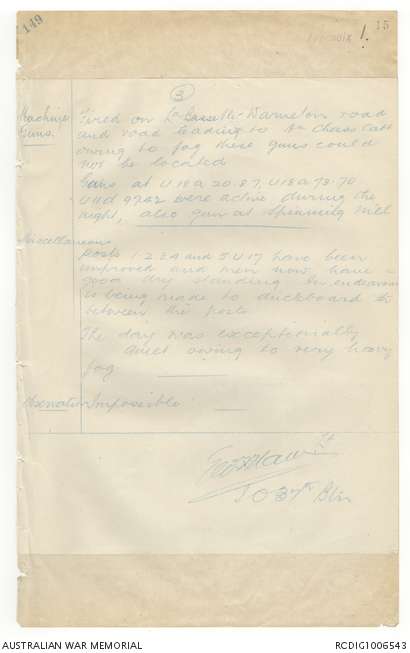 149
15
1.
(3)
Machine Guns. Fired on La Basse Ville - Warneton road
and road leading to
owing to fog these guns could
not be located
Guns at U18a 20.87, U18a 78.70
U11d 92.42 were active during the
night, also gun at Spinning Mill
Miscellaneous
Posts 1 2 3 4 and 5 U17 have been
improved and men now have a
good dry standing An endeavour
is being made to duckboard
between the posts.
The day was exceptionally
quiet owing to very heavy
fog
Observation Impossible
Lt
I O 37th Bln
AUSTRALIAN WAR MEMORIAL
RCDIG1006543